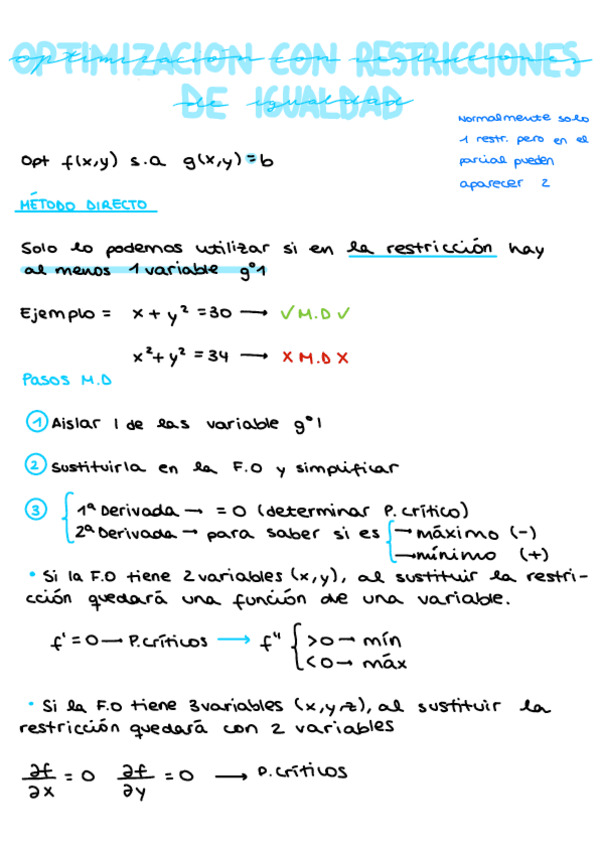 OPTIMIZACIÓN CON RESTRICCIONES
optimización con restricciones
DE IGUALDAD
de igualdad
Normalmente solo
1 restr. pero en el
parcial pueden
aparecer 2
Opt f(x,y) s.a g(x,y) = b
MÉTODO DIRECTO
Solo lo podemos utilizar si en la restricción hay
al menos 1 variable gº1
Ejemplo = x + y² = 30 → ✓ M.D ✓
x² + y² = 34 → X M.D X
Pasos M.D
1 Aislar 1 de las variable gº1
2 Sustituirla en la F.O y simplificar
3 { 1ª Derivada → = 0 (determinar P. crítico)
2ª Derivada → para saber si es { → máximo (-)
→ mínimo (+)
• Si la F.O tiene 2 variables (x,y), al sustituir la restri-
cción quedará una función de una variable.
f' = 0 → P. críticos → f'' { > 0 → mín
< 0 → máx
• Si la F.O tiene 3 variables (x,y,z), al sustituir la
restricción quedará con 2 variables
∂f/∂x = 0 ∂f/∂y = 0 → P. críticos